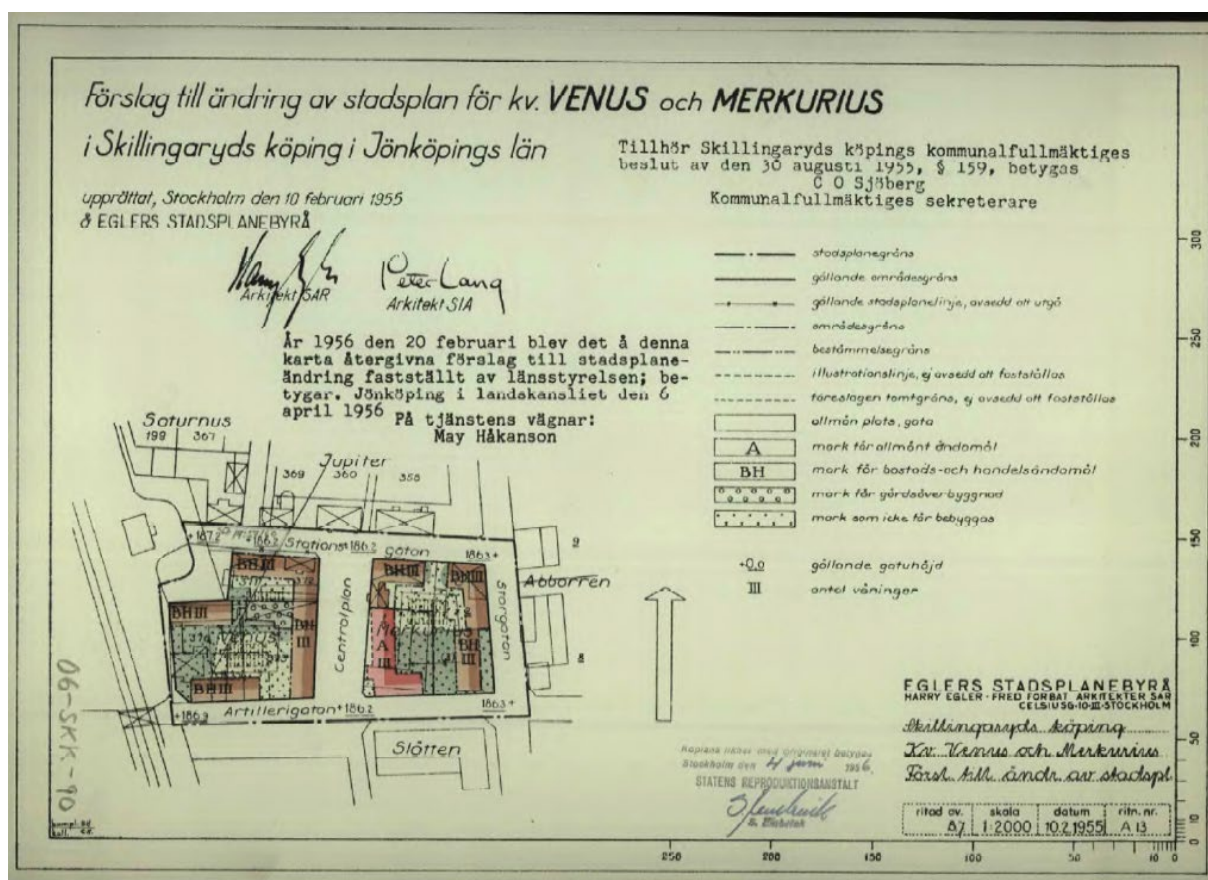 Förslag till ändring av stadsplan för kv. VENUS och MERKURIUS
i Skillingaryds köping i Jönköpings län
upprättat, Stockholm den 10 februari 1955
å EGLERS STADSPLANEBYRÅ
Arkitekt SAR
Peter Lang
Arkitekt SIA
Tillhör Skillingaryds köpings kommunalfullmäktiges
beslut av den 30 augusti 1955, § 159, betygas
C O Sjöberg
Kommunalfullmäktiges sekreterare
År 1956 den 20 februari blev det å denna
karta återgivna förslag till stadsplane-
ändring fastställt av länsstyrelsen; be-
tygar. Jönköping i landskansliet den 6
april 1956
På tjänstens vägnar:
May Håkanson
stadsplanegräns
gällande områdesgräns
gällande stadsplanelinje, avsedd att utgå
områdesgräns
bestämmelsegräns
illustrationslinje, ej avsedd att fastställas
föreslagen tomtgräns, ej avsedd att fastställas
allmän plats, gata
A mark för allmänt ändamål
BH mark för bostads- och handelsändamål
mark för gårdsöverbyggnad
mark som icke får bebyggas
+0.0 gällande gatuhöjd
III antal våningar
Saturnus
199 367
Jupiter
369 360 358
+187.2 +186.2 Stations +186.2 gatan 186.3+
BH III
BH III
BH III
BH III
BH III
BH III
BH III
BH III
Venus
Centralplan
Merkurius
A III
Storgatan
Abborren
9
8
+186.9 Artillerigatan +186.2 186.3+
Slätten
06-SKK-90
EGLERS STADSPLANEBYRÅ
HARRY EGLER - FRED FORBAT ARKITEKTER SAR
CELSIUSG·10·III·STOCKHOLM
Skillingaryds köping
Kv. Venus och Merkurius
Försl. till ändr. av stadspl
ritad av. skala datum ritn. nr.
1:2000 10.2.1955 A 13
Kopians likhet med originalet betygas
Stockholm den 4 juni 1956
STATENS REPRODUKTIONSANSTALT
300
250
200
150
100
50
10
0
250 200 150 100 50 10 0